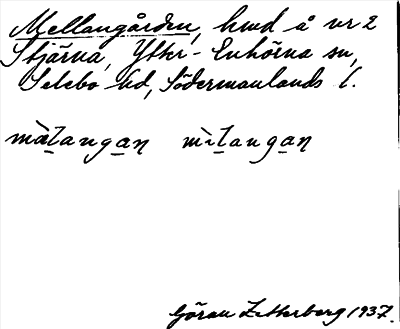 Mellangården, hmd å nr 2
Stjärna, Ytter-Enhörna sn,
Selebo hd, Södermanlands l.
mälangan milangan
Göran Zetterberg 1937.